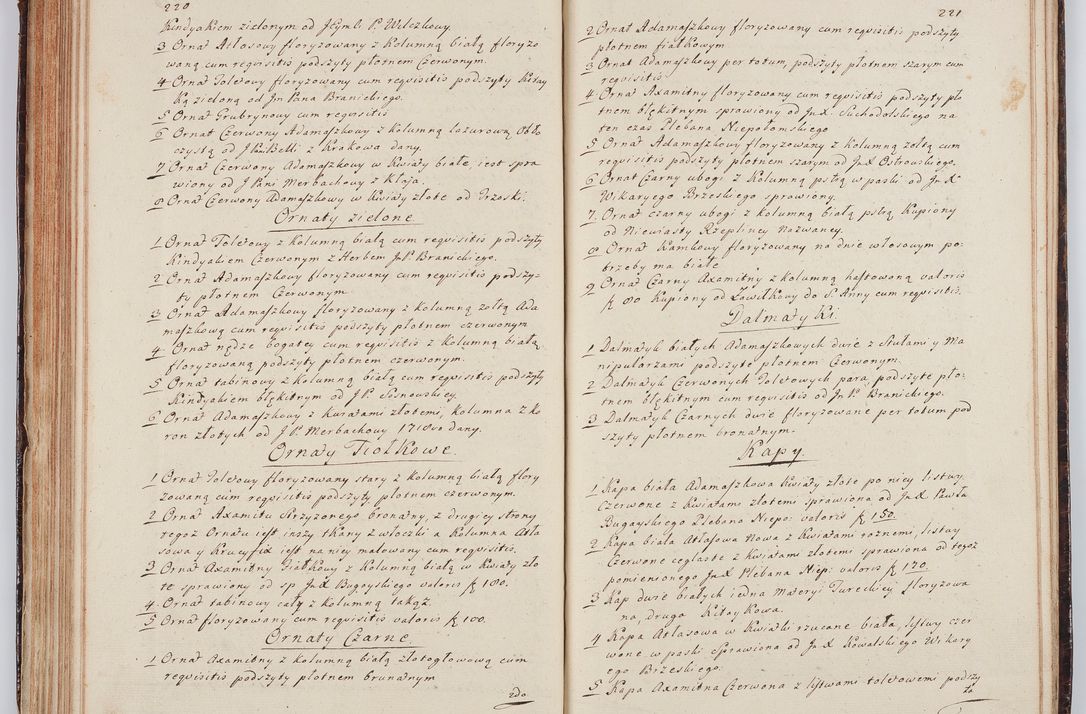 220
Kindyakiem zielonym od Jeyml. P. Wilczkowy.
3 Ornat Atłosowy floryzowany z kolumną białą floryzo
waną cum reqvisitis podszyty płotnem Czerwonym.
4 Ornat Toletowy floryzowany cum reqvisitis podszyty kitay
ką zieloną od Jm Pana Branickiego.
5 Ornat Grubrynowy cum reqvisitis
6 Ornat Czerwony Adamaszkowy z kolumną lazurową Obło
czystą od z Krakowa dany.
7 Ornat Czerwony Adamaszkowy w kwiaty białe, iest spra
wiony od J Pani Merbachowy z Kloja.
8 Ornat Czerwony Adamaszkowy w kwiaty złote od Trzoski.
Ornaty zielone
1 Ornat Toletowy z kolumną białą cum reqvisitis podszyty
kindyakiem Czerwonym z Herbem J.P. Branickiego.
2 Ornat Adamaszkowy floryzowany cum reqvisitis podszy-
ty płotnem Czerwonym
3 Ornat Adamaszkowy floryzowany z kolumną zołtą Ada
maszkową cum reqvisitis podszyty płotnem czerwonym
4 Ornat nędze bogatey cum reqvisitis z kolumną białą
floryzowaną podszyty płotnem czerwonym.
5 Ornat tabinowy z kolumną białą cum reqvisitis podszyty
Kindyakiem błękitnym od J P. Sosnowskiey.
6 Ornat Adamaszkowy z kwiatami złotemi, kolumna z ko
ron złotych od J P. Merbachowy dany.
Ornaty Fiołkowe.
1 Ornat Toletowy floryzowany stary z kolumną białą flory
zowaną cum reqvisitis podszyty płotnem czerwonym.
2 Ornat Axamitu strzyzonego bronatny, z drugiey strony
tegoż Ornatu iest inszy tkany z włoczki a kolumna Atła
sowa y Krucyfix iest na niey malowany cum reqvisitis.
3 Ornat Axamitny Fiałkowy z kolumną białą w kwiaty zło
te sprawiony od sp JmX Bugayskiego valoris f 180.
4 Ornat tabinowy cały z kolumną takąż.
5 Ornat floryzowany cum reqvisitis valoris f 100.
Ornaty Czarne
1 Ornat Axamitny z kolumną białą złotogłowową cum
reqvisitis podszyty płotnem brunatnym
2do
221
2 Ornat Adamaszkowy floryzowany cum reqvisitis podszyty
płotnem fiałkowym
3 Ornat Adamaszkowy per totum, podszyty płotnem szarym cum
reqvisitis
4 Ornat Axamitny floryzowany cum reqvisitis podszyty pło
tnem błękitnym sprawiony od JmX. Suchodolskiego na
ten czas Plebana Niepołomskiego
5 Ornat Adamaszkowy floryzowany z kolumną zołtą cum
reqvisitis podszyty płotnem szarym od JmX Ostrowskiego.
6 Ornat Czarny ubogi z kolumną pstrą w paski od JmX
Wikaryego Brzeskiego sprawiony.
7. Ornat czarny ubogi z kolumną białą pstrą kupiony
od Niewiasty Rzepliney nazwaney.
8 Ornat kamkowy floryzowany na dnie włosowym po:
brzeby ma białe
9 Ornat Czarny Axamitny z kolumną haftowaną valoris
f 80 kupiony od Zawiłkowy do S. Anny cum reqvisitis.
Dalmatyki.
1 Dalmatyk białych Adamaszkowych dwie z stułami y Ma
nipularzami podszyte płotnem Czerwonym.
2 Dalmatyk Czerwonych Toletowych para podszyte pło:
tnem błękitnym cum reqvisitis od Jm P. Branickiego.
3 Dalmatyk Czarnych dwie floryzowane per totum pod
szyty płotnem bronatnym.
Kapy.
1 Kapa biała Adamaszkowa kwiaty złote po niey listwy
czerwone z kwiatami złotemi sprawiona od JmX. Pawła
Bugayskiego Plebana Niepo: valoris f 150.
2 Kapa biała Atłasowa nowa z kwiatami roznemi, listwy
Czerwone ceglaste z kwiatami złotemi sprawiona od tegoż
pomienionego JmX Plebana Niep: valoris f 170.
3 Kap dwie białych iedna materyi Tureckiey floryzowa
na, druga Kitaykowa.
4 Kapa Atłasowa w kwiatki rzucane biała, listwy czer
wone w paski sprawiona od JmX Kowalskiego Wikary
ego Brzeskiego.
5 Kapa Axamitna Czerwona z listwami toletowemi podszy
ta